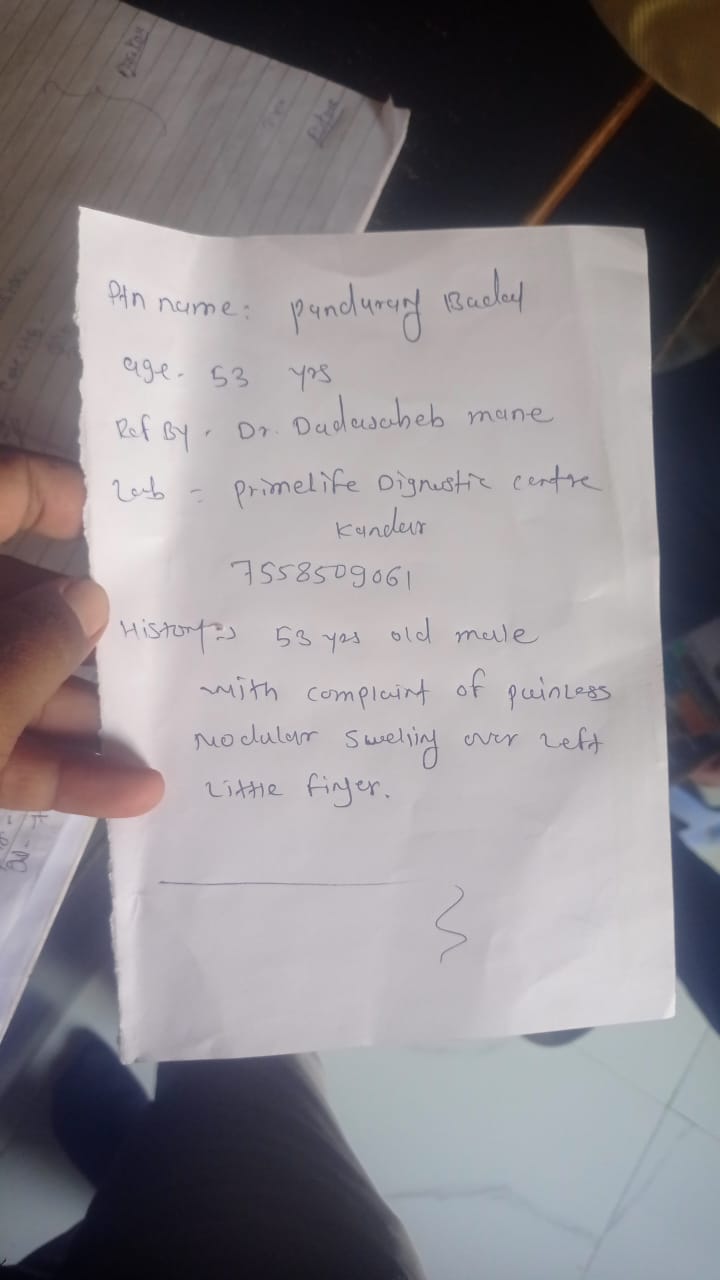 Ptn name: pandurang Badal
age - 53 yrs
Ref By . Dr. Dadasaheb mane
Lab = primelife Dignostic centre
Kandar
7558509061
History:⇒ 53 yrs old male
with complaint of painless
Nodular swelling over Left
Little finger.